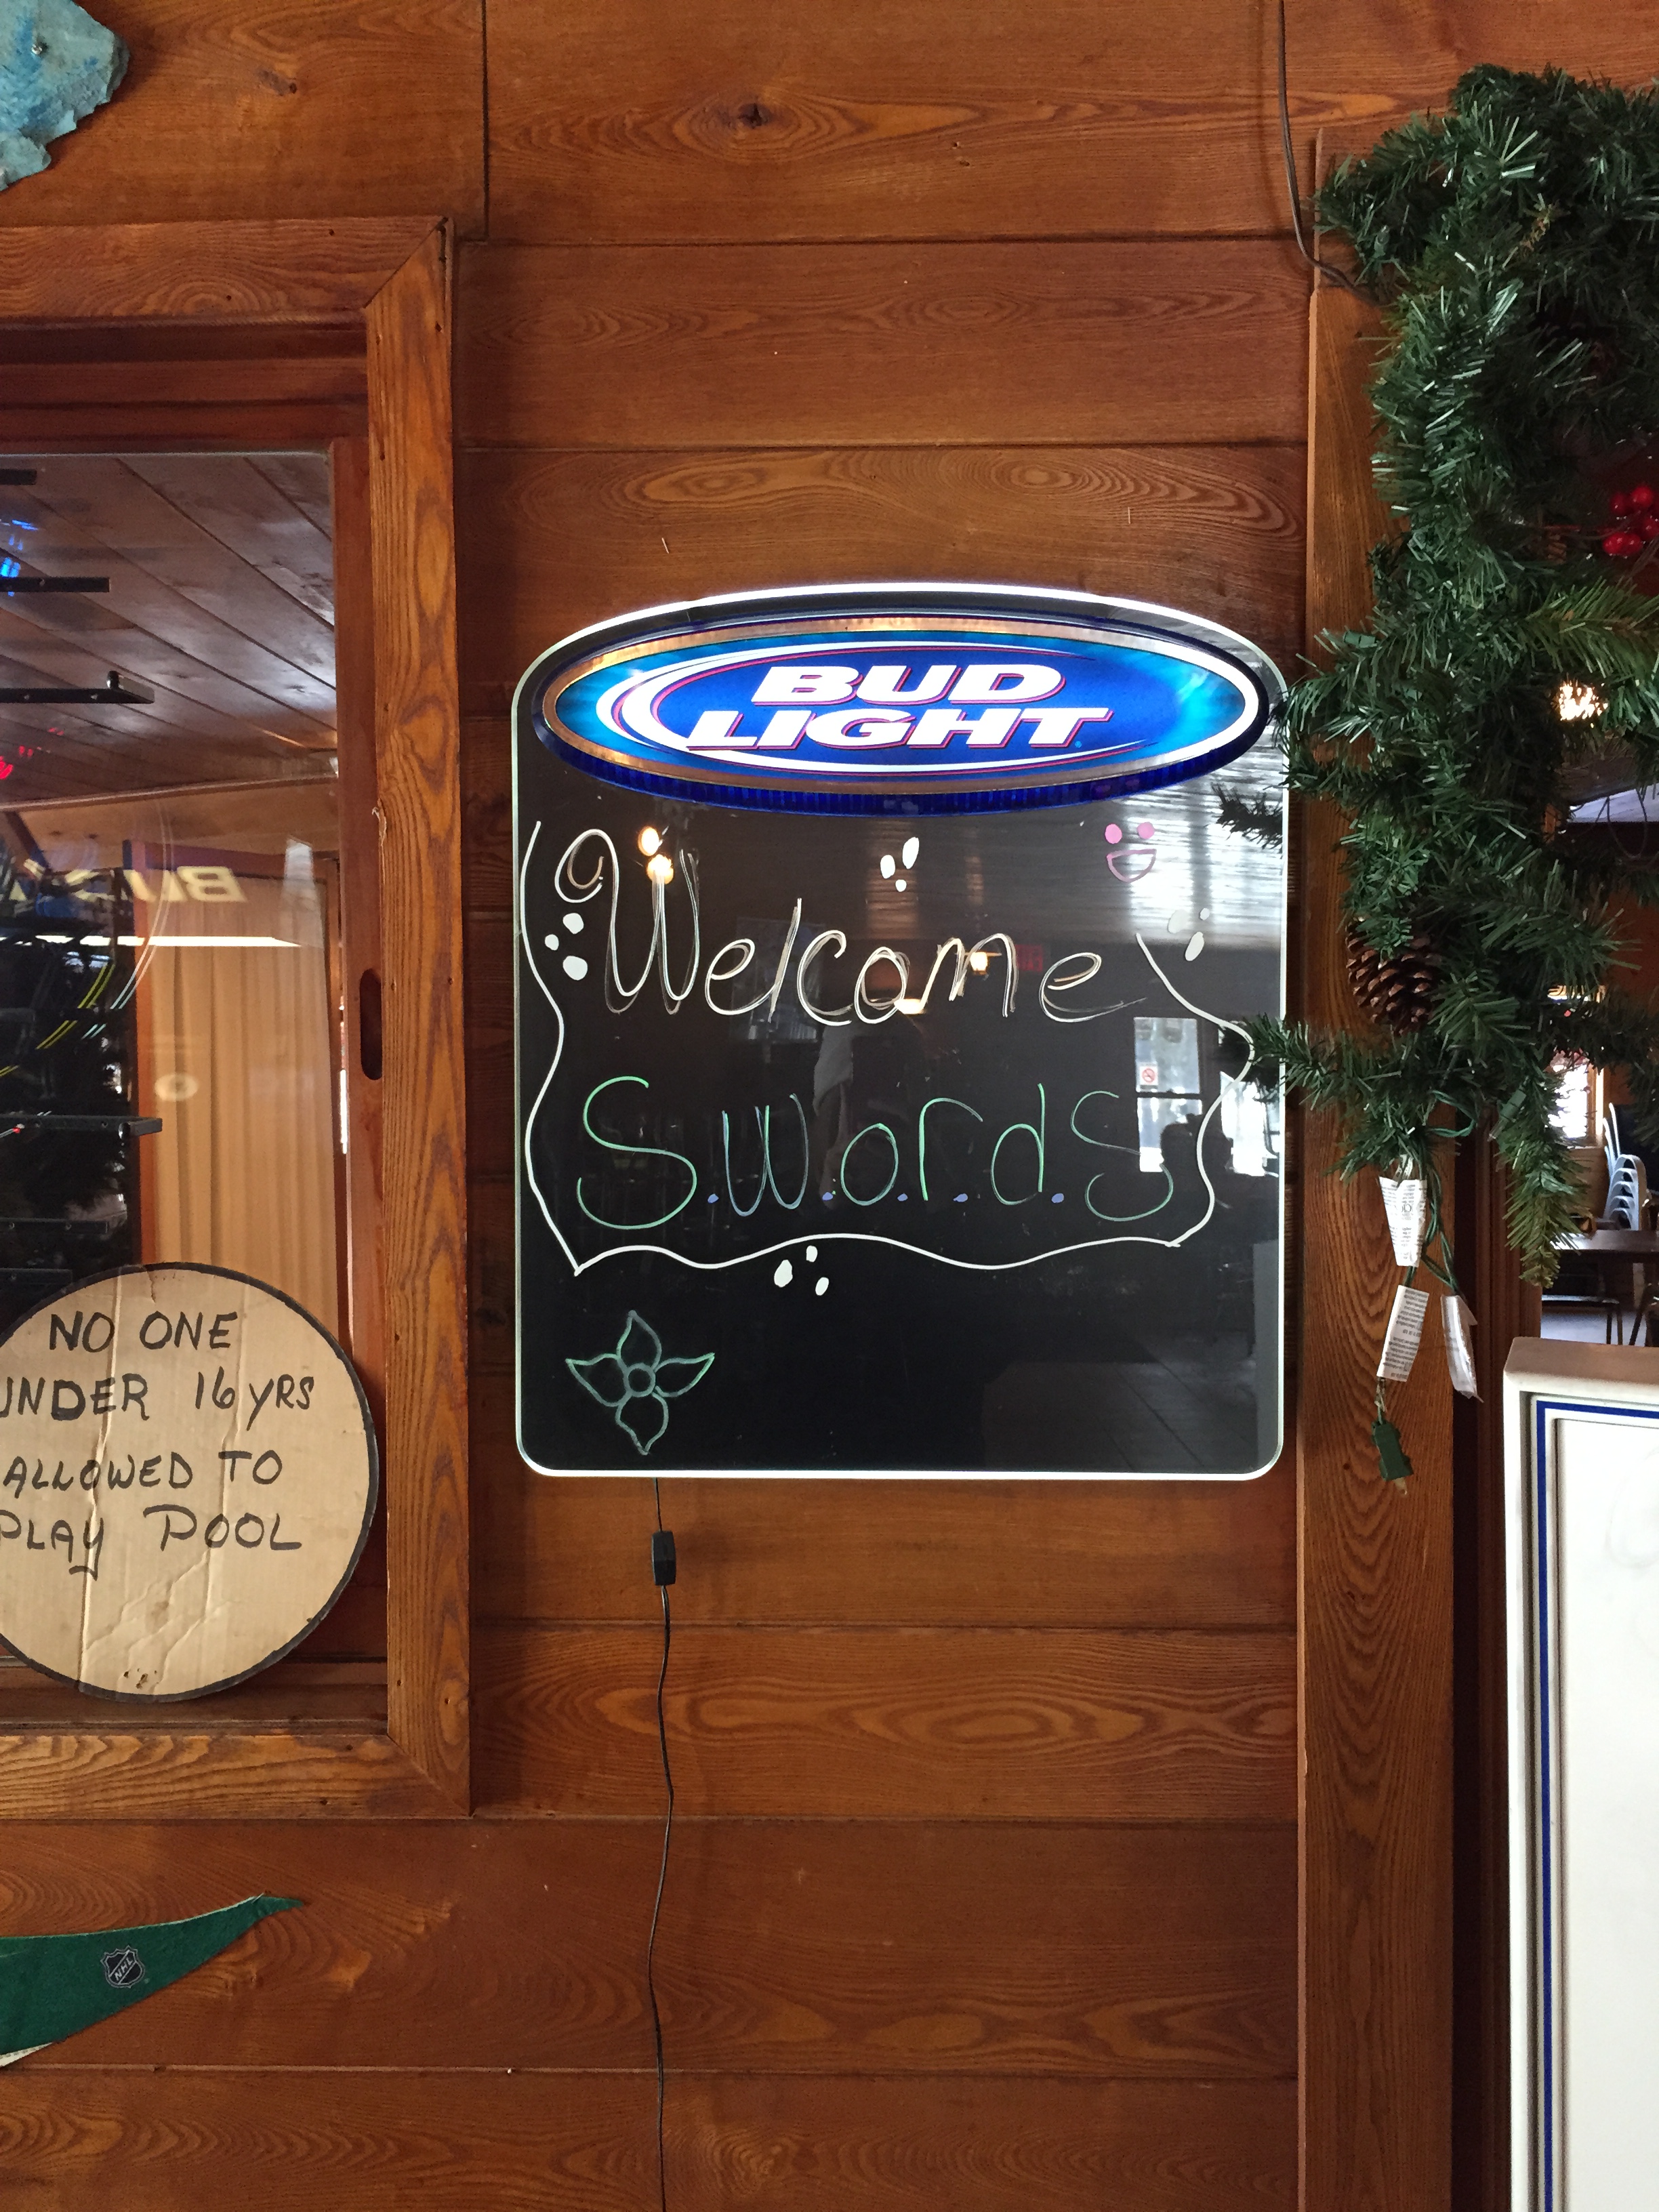 BUD
LIGHT
Welcome
S.w.o.r.d.s
NO ONE
UNDER 16 YRS
ALLOWED TO
PLAY POOL
NHL